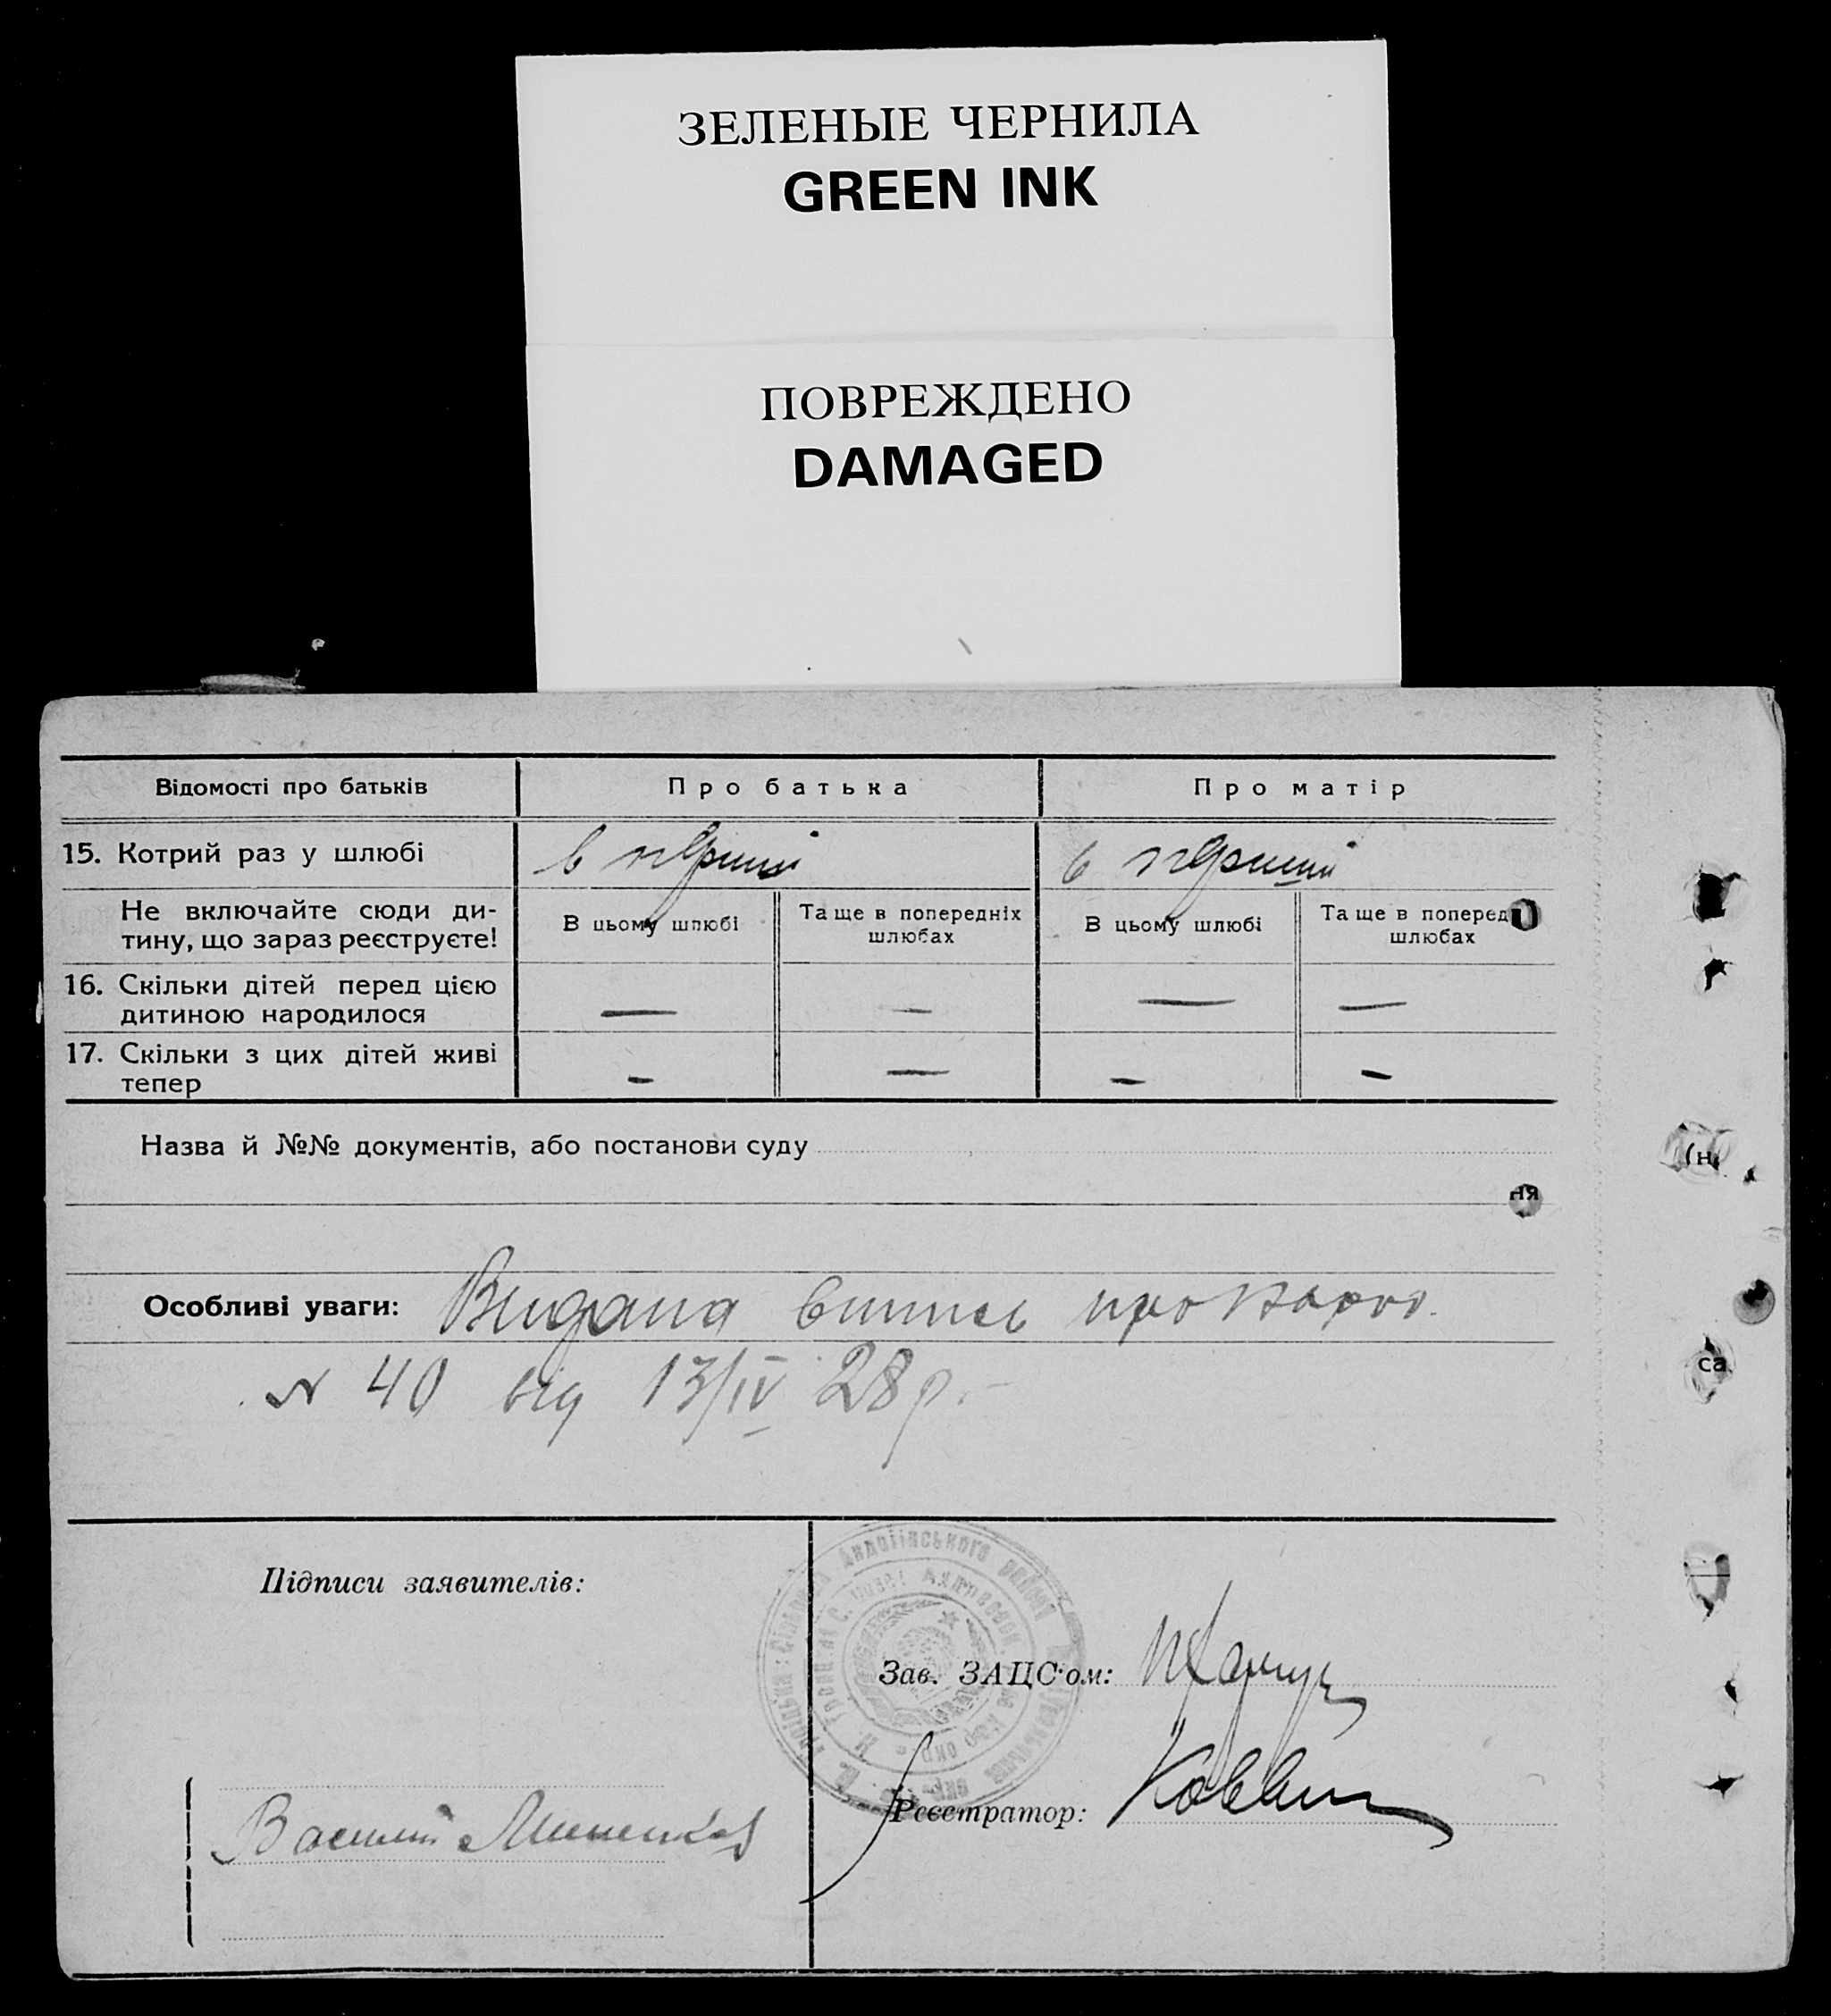 ЗЕЛЕНЫЕ ЧЕРНИЛА
GREEN INK
ПОВРЕЖДЕНО
DAMAGED
Відомості про батьків Про батька Про матір
15. Котрий раз у шлюбі в перший в перший
Не включайте сюди ди-
тину, що зараз реєструєте!
В цьому шлюбі Та ще в попередніх
шлюбах
В цьому шлюбі Та ще в поперед
шлюбах
16. Скільки дітей перед цією
дитиною народилося — — — —
17. Скільки з цих дітей живі
тепер – — – –
Назва й №№ документів, або постанови суду
ня
(н
Особливі уваги: Видана випись про народ.
са
№ 40 від 13/IV 28 р.
Підписи заявителів:
Авдіївського
Зав. ЗАЦС'ом:
Реєстратор:
Василий